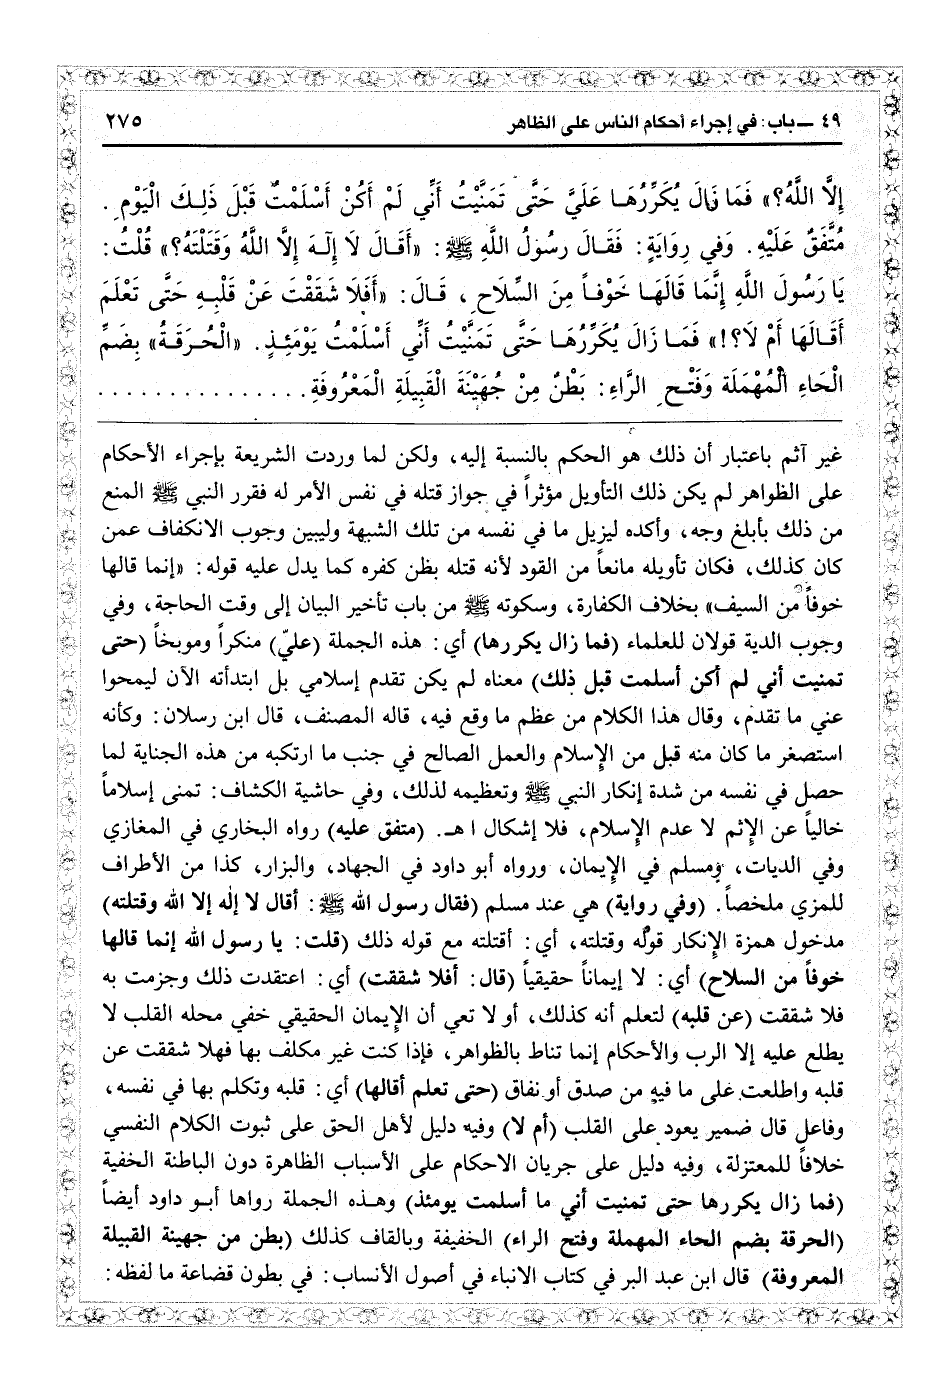 ٤٩ ـ باب: في إجراء أحكام الناس على الظاهر ٢٧٥
إِلَّا اللَّهُ؟» فَمَا زَالَ يُكَرِّرُهَا عَلَيَّ حَتَّى تَمَنَّيْتُ أَنِّي لَمْ أَكُنْ أَسْلَمْتُ قَبْلَ ذَلِكَ الْيَوْمِ.
مُتَّفَقٌ عَلَيْهِ. وَفِي رِوَايَةٍ: فَقَالَ رَسُولُ اللَّهِ ﷺ: «أَقَالَ لَا إِلَهَ إِلَّا اللَّهُ وَقَتَلْتَهُ؟» قُلْتُ:
يَا رَسُولَ اللَّهِ إِنَّمَا قَالَهَا خَوْفاً مِنَ السِّلَاحِ، قَالَ: «أَفَلَا شَقَقْتَ عَنْ قَلْبِهِ حَتَّى تَعْلَمَ
أَقَالَهَا أَمْ لَا؟!» فَمَا زَالَ يُكَرِّرُهَا حَتَّى تَمَنَّيْتُ أَنِّي أَسْلَمْتُ يَوْمَئِذٍ. «الْحُرَقَةُ» بِضَمِّ
الْحَاءِ الْمُهْمَلَةِ وَفَتْحِ الرَّاءِ: بَطْنٌ مِنْ جُهَيْنَةَ الْقَبِيلَةِ الْمَعْرُوفَةِ. . . . . . . . . . . . . . .
غير آثم باعتبار أن ذلك هو الحكم بالنسبة إليه، ولكن لما وردت الشريعة بإجراء الأحكام
على الظواهر لم يكن ذلك التأويل مؤثراً في جواز قتله في نفس الأمر له فقرر النبي ﷺ المنع
من ذلك بأبلغ وجه، وأكده ليزيل ما في نفسه من تلك الشبهة وليبين وجوب الانكفاف عمن
كان كذلك، فكان تأويله مانعاً من القود لأنه قتله بظن كفره كما يدل عليه قوله: «إنما قالها
خوفاً من السيف» بخلاف الكفارة، وسكوته ﷺ من باب تأخير البيان إلى وقت الحاجة، وفي
وجوب الدية قولان للعلماء (فما زال يكررها) أي: هذه الجملة (عليّ) منكراً وموبخاً (حتى
تمنيت أني لم أكن أسلمت قبل ذلك) معناه لم يكن تقدم إسلامي بل ابتدأته الآن ليمحوا
عني ما تقدم، وقال هذا الكلام من عظم ما وقع فيه، قاله المصنف، قال ابن رسلان: وكأنه
استصغر ما كان منه قبل من الإسلام والعمل الصالح في جنب ما ارتكبه من هذه الجناية لما
حصل في نفسه من شدة إنكار النبي ﷺ وتعظيمه لذلك، وفي حاشية الكشاف: تمنى إسلاماً
خالياً عن الإثم لا عدم الإسلام، فلا إشكال ا هـ. (متفق عليه) رواه البخاري في المغازي
وفي الديات، ومسلم في الإيمان، ورواه أبو داود في الجهاد، والبزار، كذا من الأطراف
للمزي ملخصاً. (وفي رواية) هي عند مسلم (فقال رسول الله ﷺ: أقال لا إله إلا الله وقتلته)
مدخول همزة الإنكار قوله وقتلته، أي: أقتلته مع قوله ذلك (قلت: يا رسول الله إنما قالها
خوفاً من السلاح) أي: لا إيماناً حقيقياً (قال: أفلا شققت) أي: اعتقدت ذلك وجزمت به
فلا شققت (عن قلبه) لتعلم أنه كذلك، أو لا تعي أن الإيمان الحقيقي خفي محله القلب لا
يطلع عليه إلا الرب والأحكام إنما تناط بالظواهر، فإذا كنت غير مكلف بها فهلا شققت عن
قلبه واطلعت على ما فيه من صدق أو نفاق (حتى تعلم أقالها) أي: قلبه وتكلم بها في نفسه،
وفاعل قال ضمير يعود على القلب (أم لا) وفيه دليل لأهل الحق على ثبوت الكلام النفسي
خلافاً للمعتزلة، وفيه دليل على جريان الاحكام على الأسباب الظاهرة دون الباطنة الخفية
(فما زال يكررها حتى تمنيت أني ما أسلمت يومئذ) وهذه الجملة رواها أبو داود أيضاً
(الحرقة بضم الحاء المهملة وفتح الراء) الخفيفة وبالقاف كذلك (بطن من جهينة القبيلة
المعروفة) قال ابن عبد البر في كتاب الانباء في أصول الأنساب: في بطون قضاعة ما لفظه: